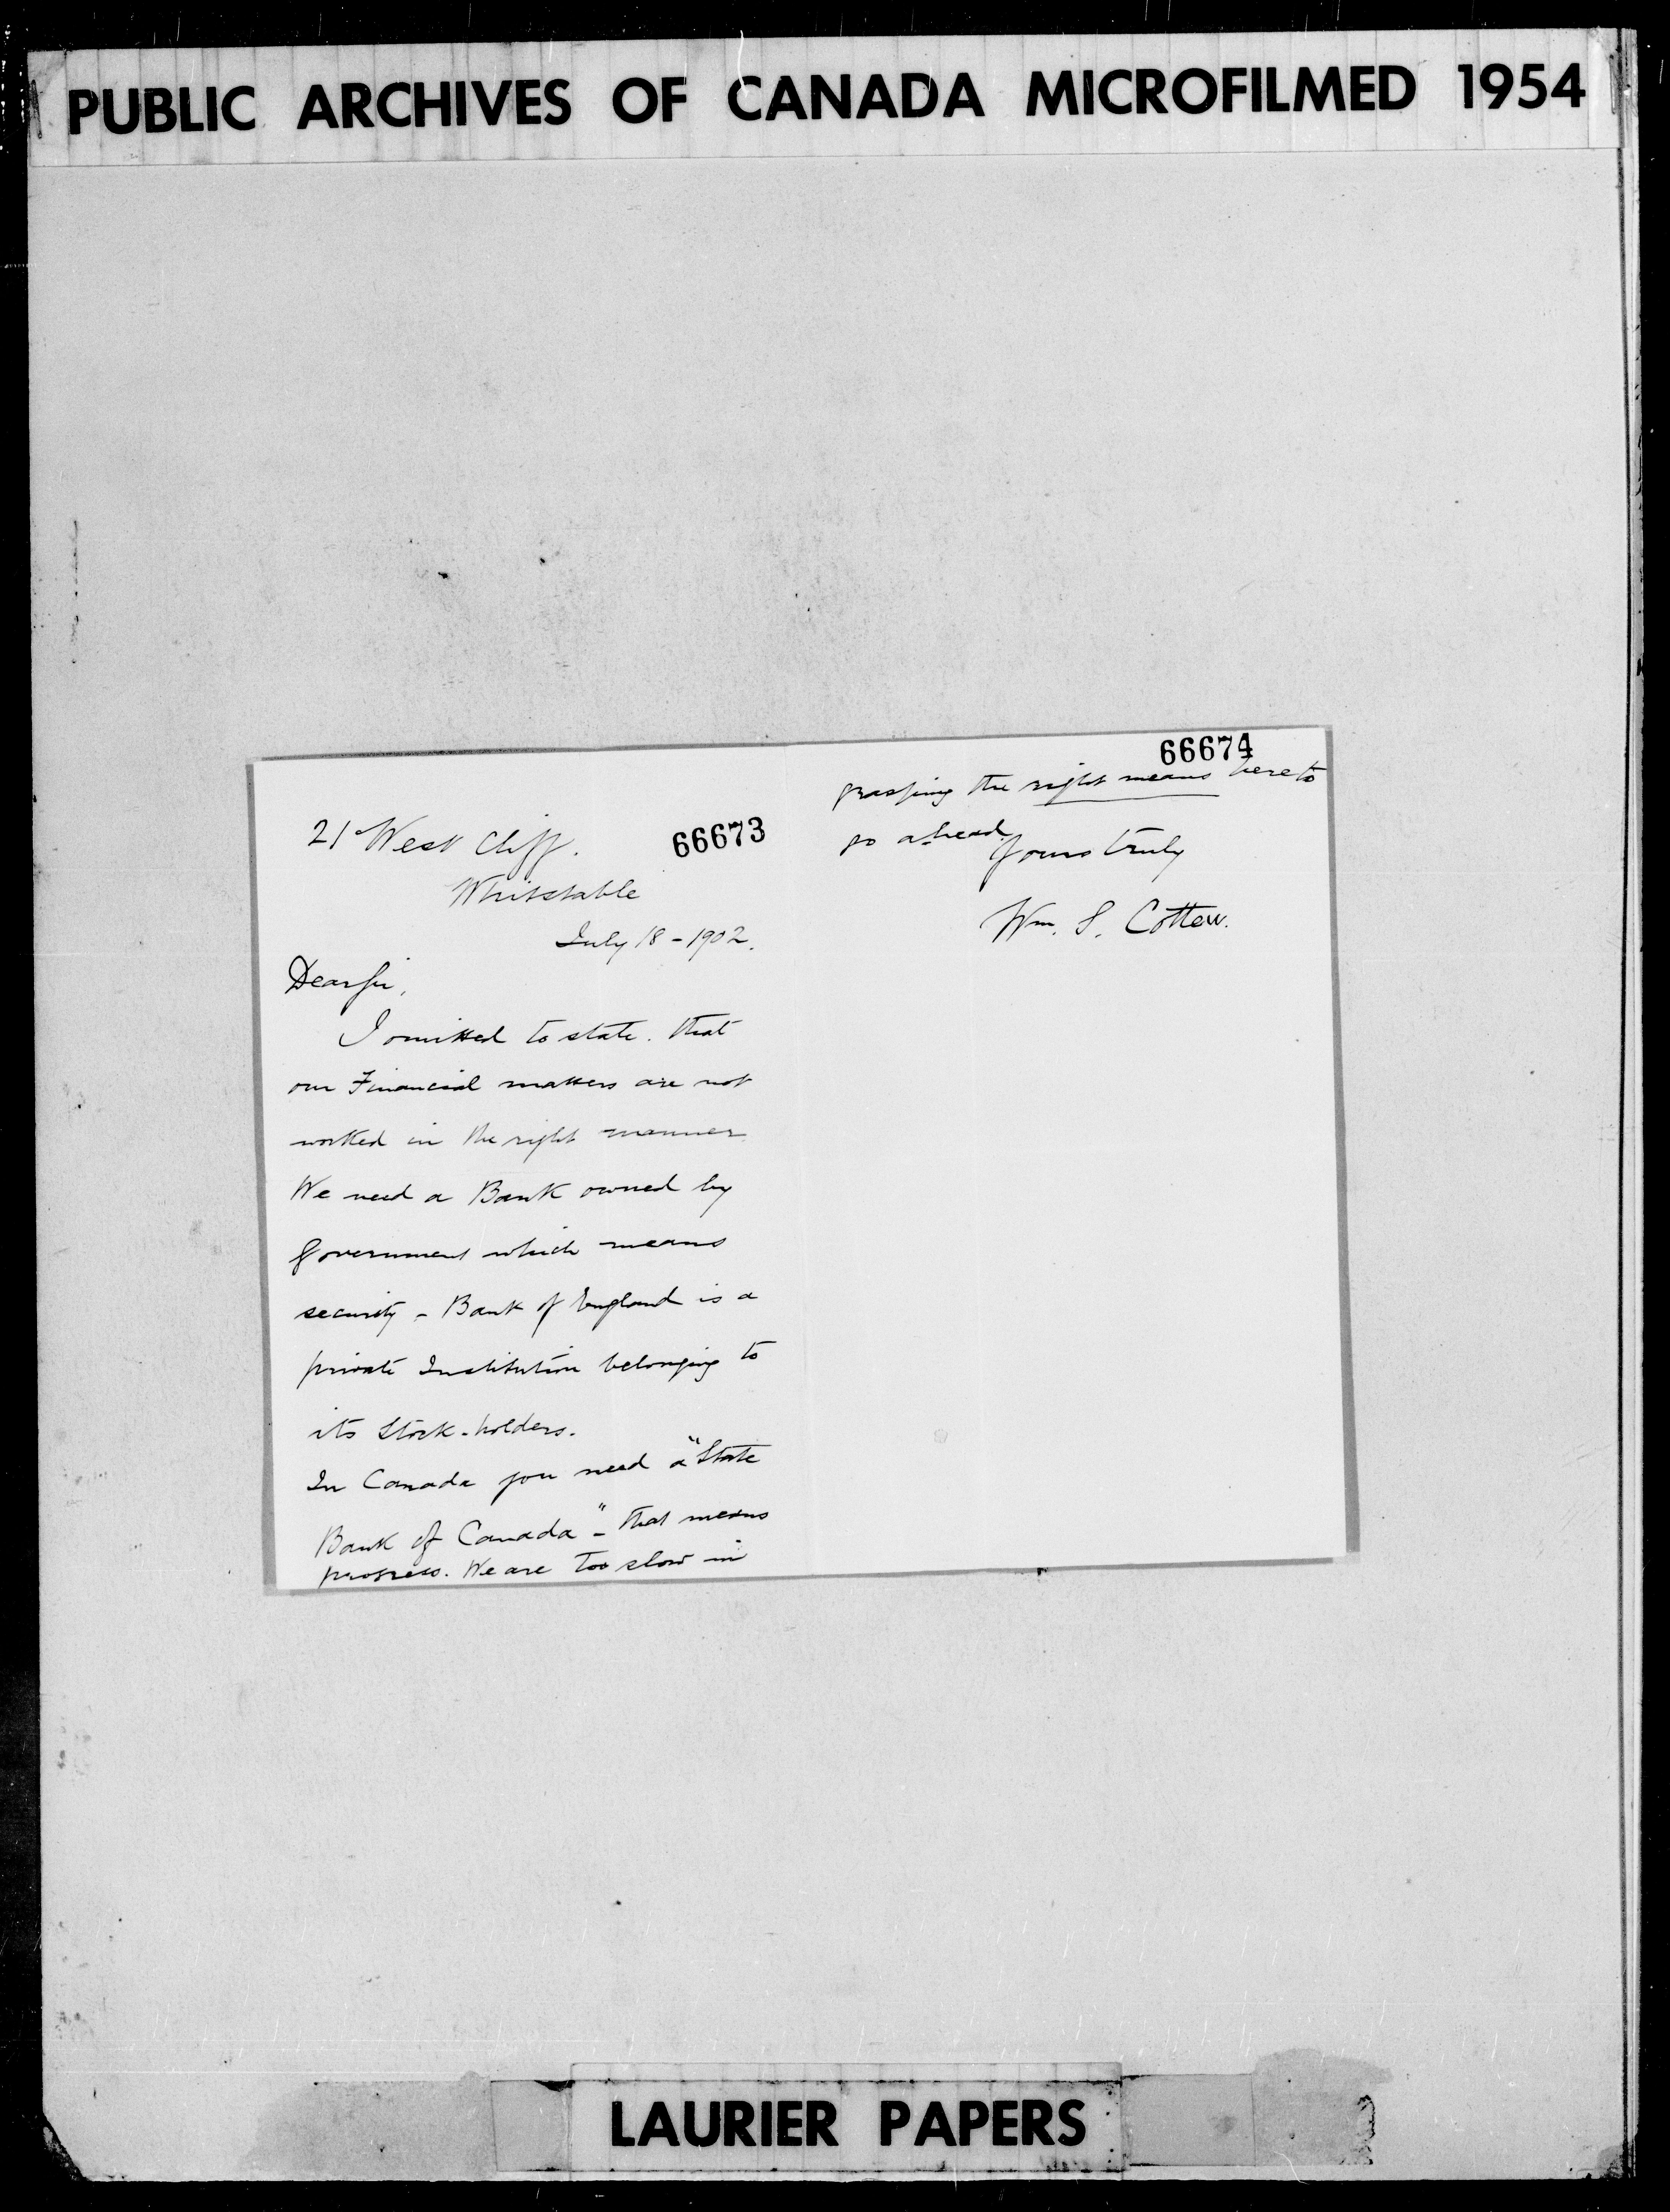 PUBLIC ARCHIVES OF CANADA MICROFILMED 1954
66673
21 West Cliff.
Whitstable
July 18 - 1902.
Dear Sir,
I omitted to state. that
our Financial matters are not
worked in the right manner
We need a Bank owned by
Government which means
security - Bank of England is a
private Institution belonging to
its Stock-holders.
In Canada you need a "State
Bank of Canada" - that means
progress. We are too slow in
66674
grasping the right means here to
go ahead.
Yours truly
Wm. S. Cottew.
LAURIER PAPERS